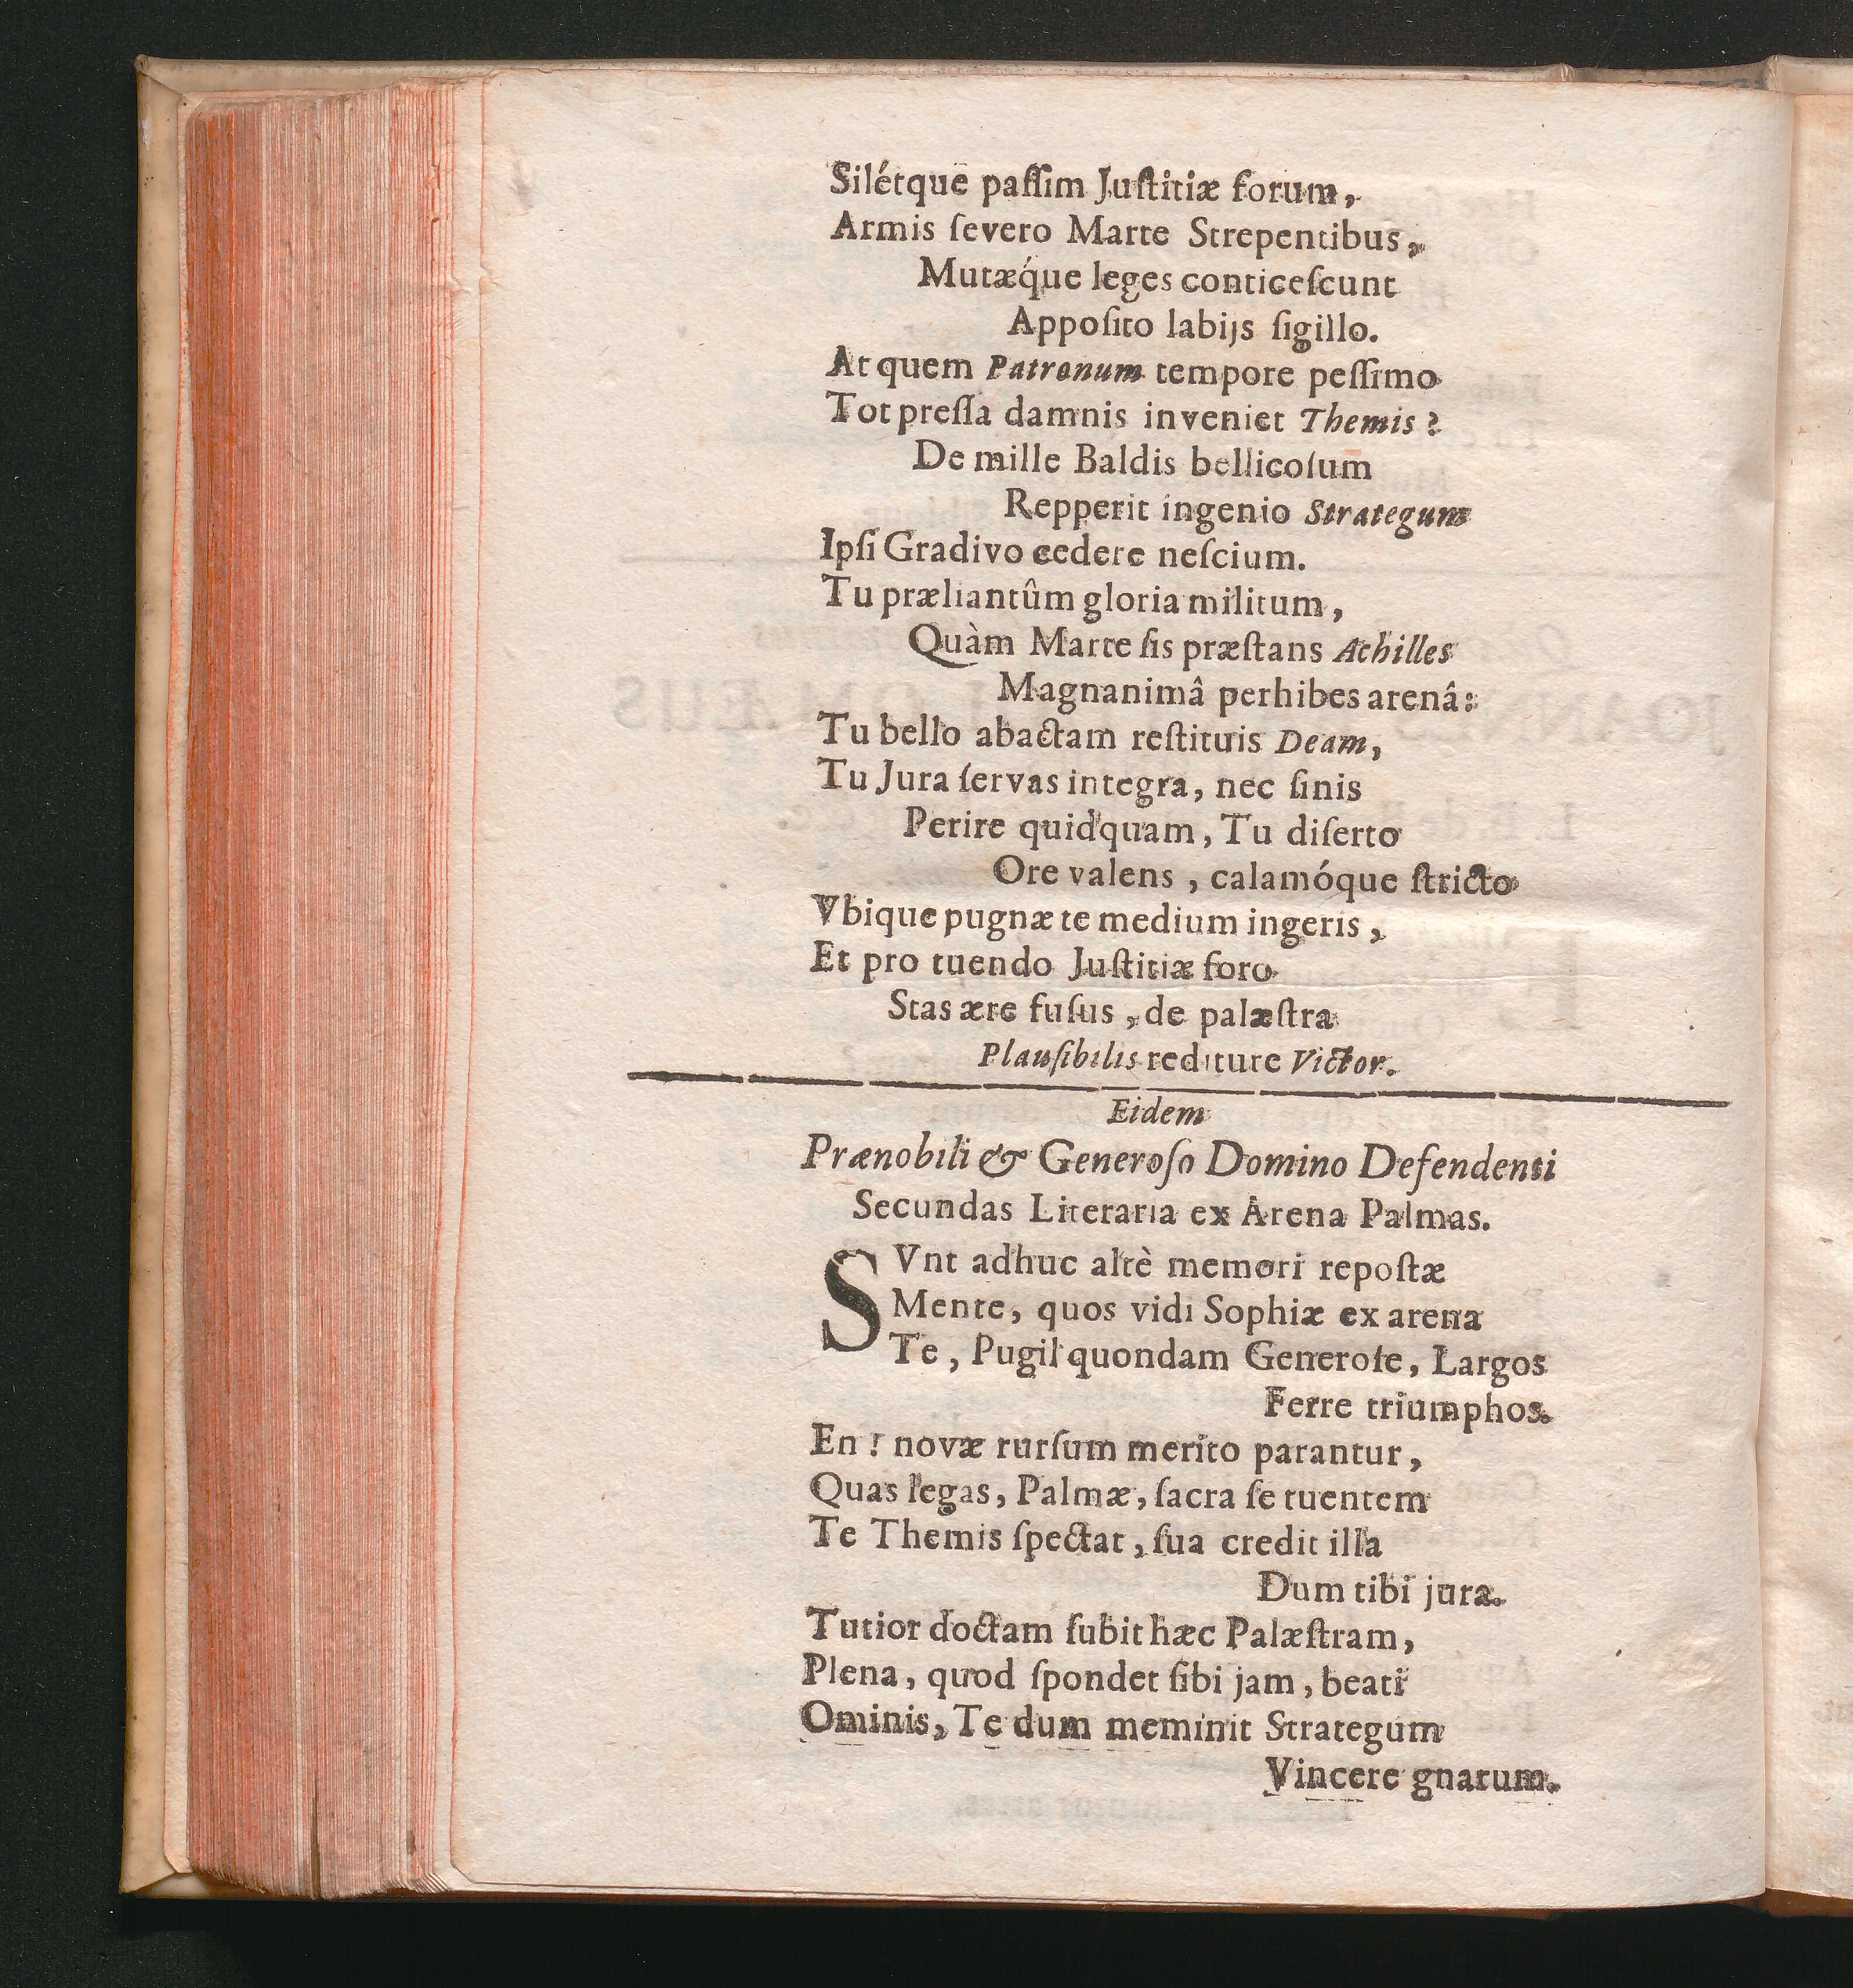 Silétque paſſim Juſtitiæ forum,
Armis ſevero Marte Strepentibus,
Mutæq́ue leges conticeſcunt
Appoſito labijs ſigillo.
At quem Patronum tempore peſſimo
Tot preſſa damnis inveniet Themis?
De mille Baldis bellicoſum
Repperit ingenio Strategum
Ipſi Gradivo cedere neſcium.
Tu præliantûm gloria militum,
Quàm Marte ſis præſtans Achilles
Magnanimâ perhibes arenâ:
Tu bello abactam reſtituis Deam,
Tu Jura ſervas integra, nec ſinis
Perire quidquam, Tu diſerto
Ore valens, calamóque ſtricto
Vbique pugnæ te medium ingeris,
Et pro tuendo Juſtitiæ foro
Stas ære fuſus, de palæſtra
Plauſibilis rediture Victor.
Eidem
Prænobili & Generoſo Domino Defendenti
Secundas Literaria ex Arena Palmas.
SVnt adhuc altè memori repoſtæ
Mente, quos vidi Sophiæ ex arena
Te, Pugil quondam Generoſe, Largos
Ferre triumphos.
En! novæ rurſum merito parantur,
Quas legas, Palmæ, ſacra ſe tuentem
Te Themis ſpectat, ſua credit illa
Dum tibi jura.
Tutior doctam ſubit hæc Palæſtram,
Plena, quod ſpondet ſibi jam, beati
Ominis, Te dum meminit Strategum
Vincere gnarum.